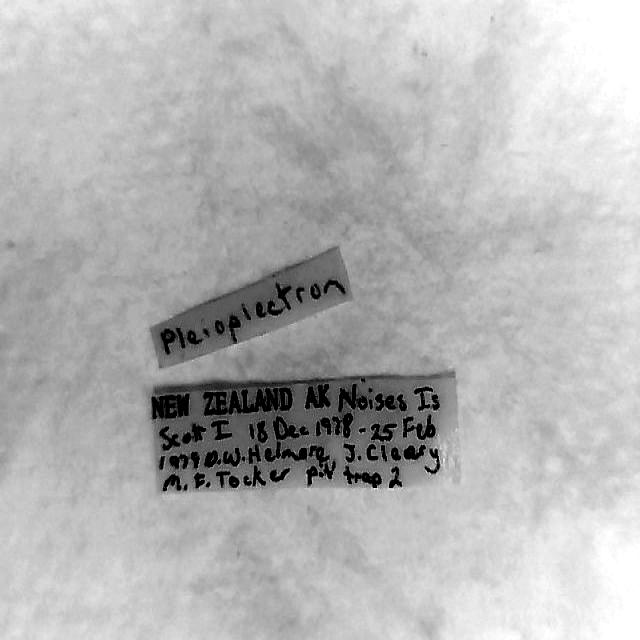 Pleioplectron
NEW ZEALAND AK Noises Is
Scott I 18 Dec 1978 - 25 Feb
1979 D.W. Helmore, J. Cleary
M. F. Tocker pit trap 2